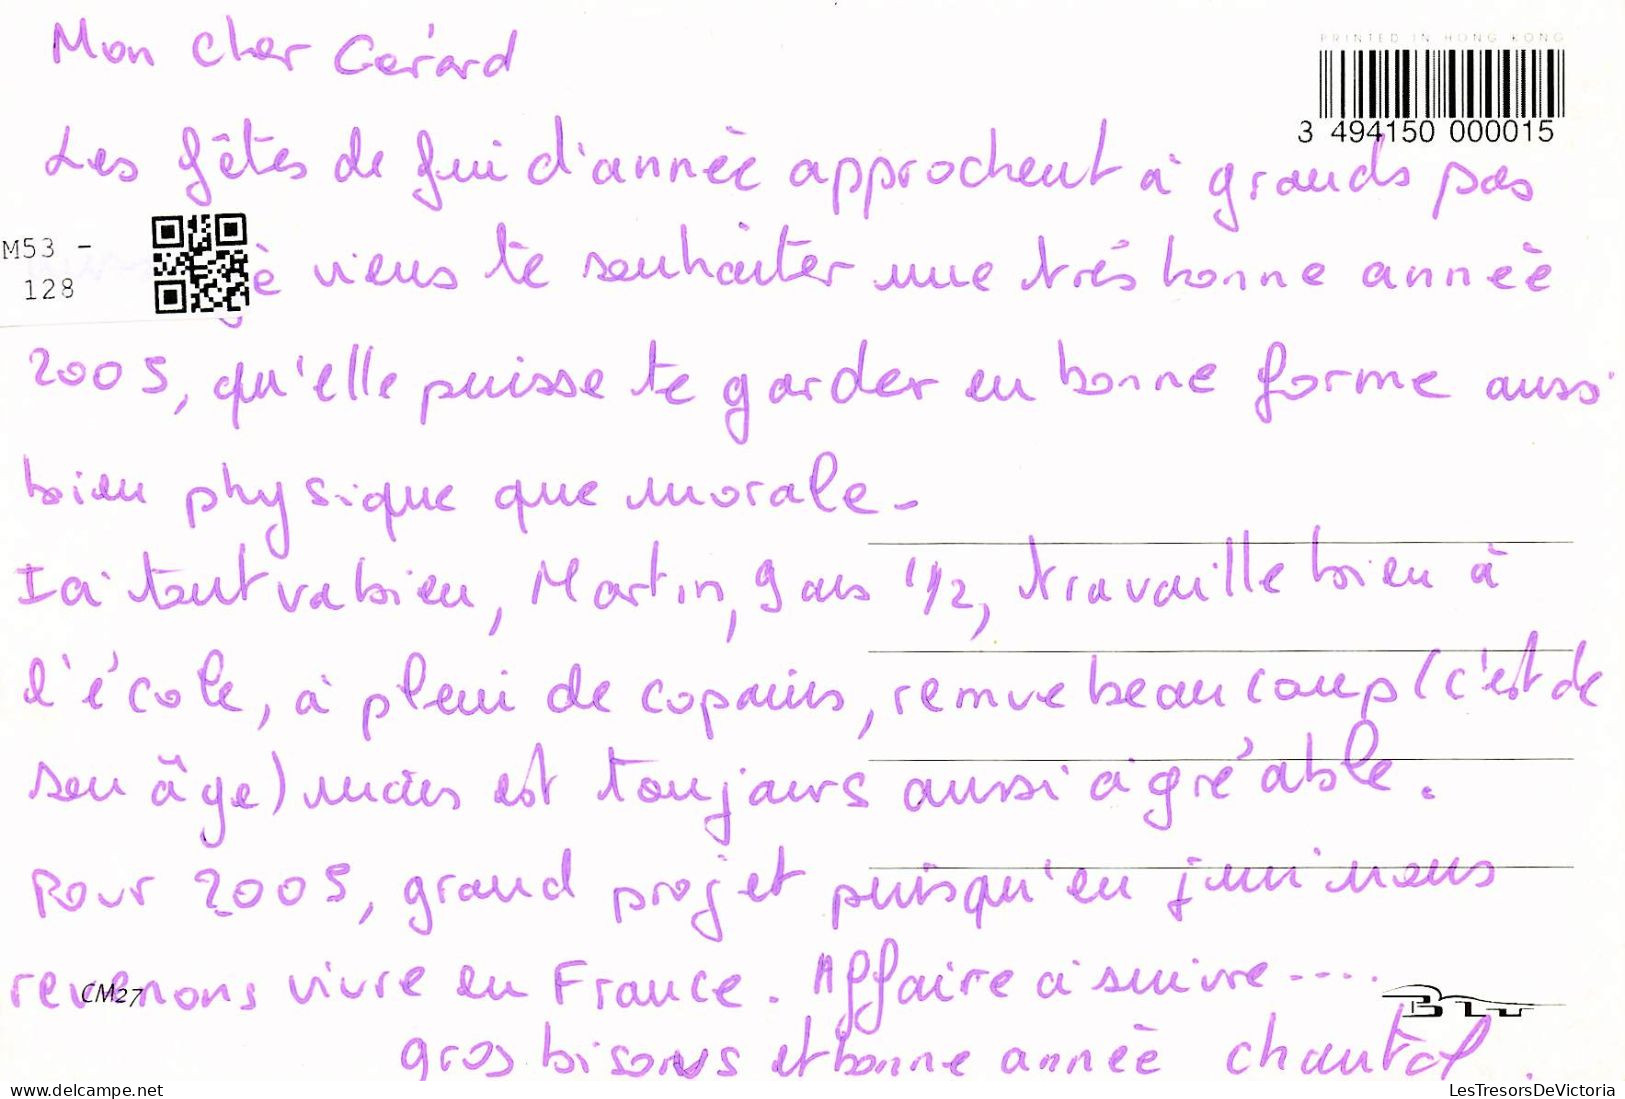 Mon cher Gérard
PRINTED IN HONG KONG
3 494150 000015
Les fêtes de fin d'année approchent à grands pas
M53 -
128
viens te souhaiter une très bonne année
2005, qu'elle puisse te garder en bonne forme aussi
bien physique que morale -
Ici tout va bien, Martin, 9 ans 1/2, travaille bien à
l'école, a plein de copains, remue beaucoup (c'est de
son âge) mais est toujours aussi agréable.
Pour 2005, grand projet puisqu'en juin nous
revenons vivre en France. Affaire à suivre ....
CM27
gros bisous et bonne année chantal.
www.delcampe.net
LesTresorsDeVictoria